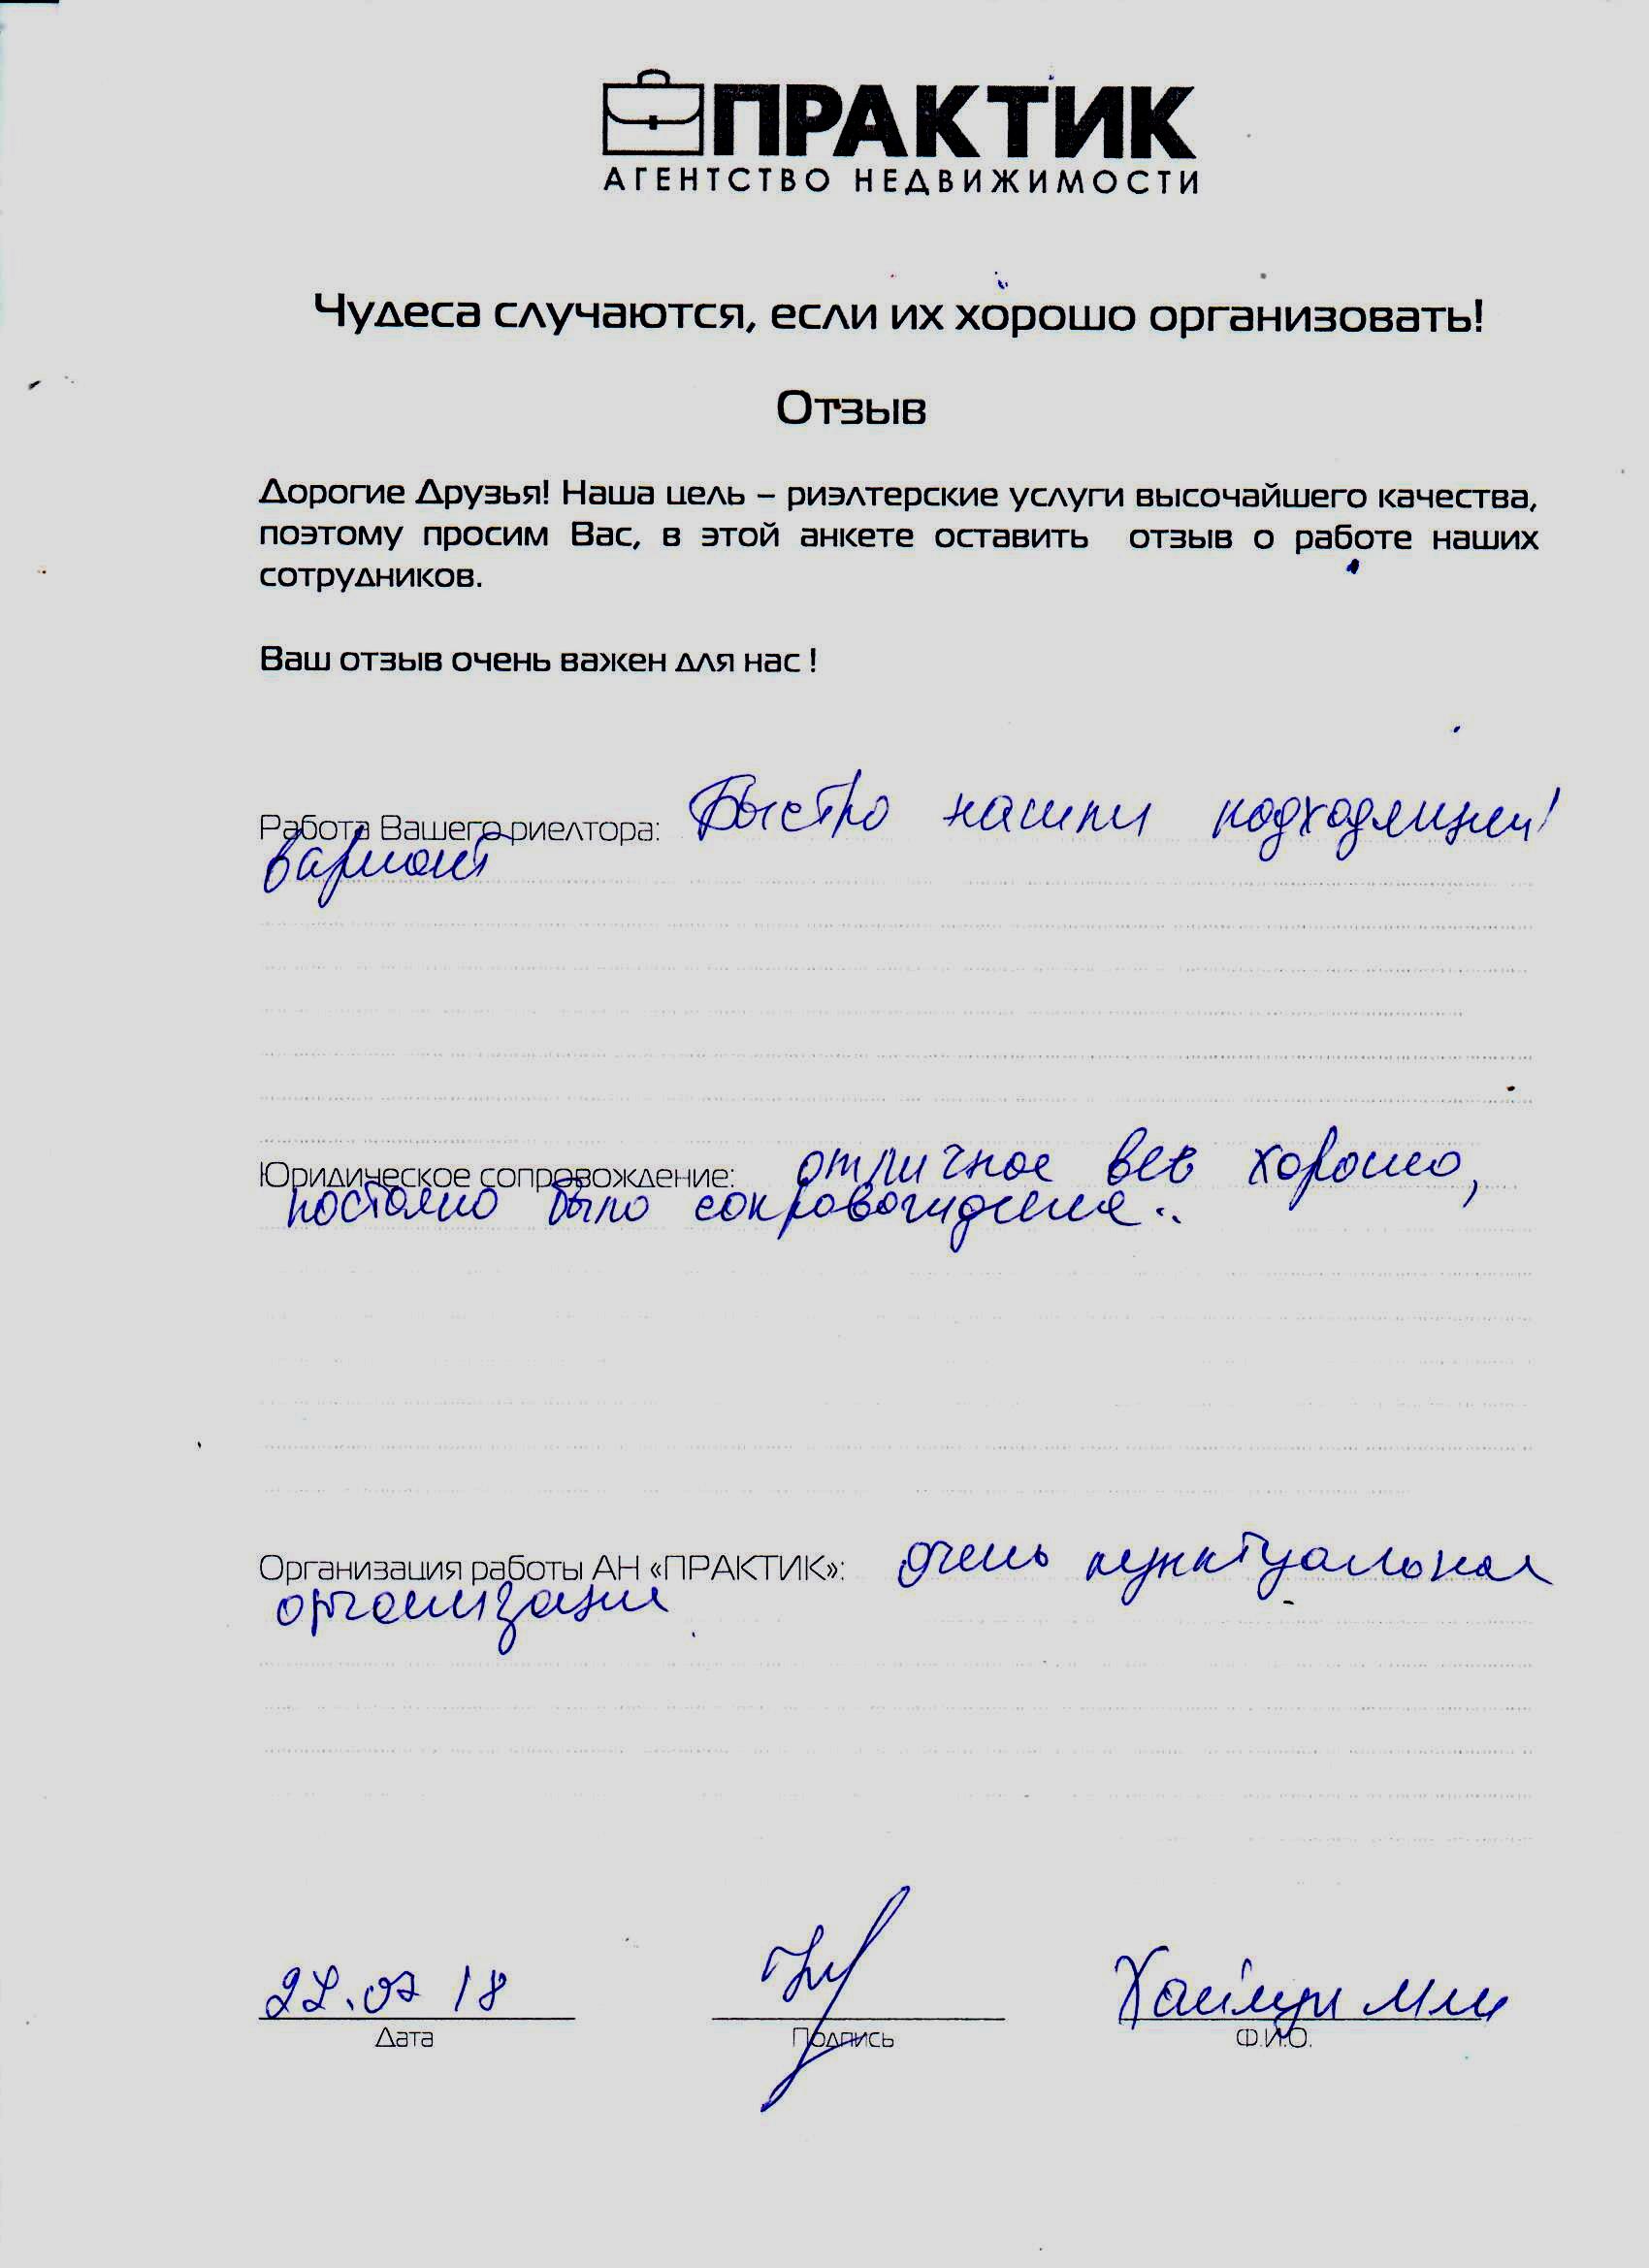 ПРАКТИК
АГЕНТСТВО НЕДВИЖИМОСТИ
Чудеса случаются, если их хорошо организовать!
Отзыв
Дорогие Друзья! Наша цель – риэлтерские услуги высочайшего качества,
поэтому просим Вас, в этой анкете оставить отзыв о работе наших
сотрудников.
Ваш отзыв очень важен для нас !
Работа Вашего риелтора: Быстро нашли подходящий
вариант
Юридическое сопровождение: отличное всё хорошо,
постояно было сопровождение..
Организация работы АН «ПРАКТИК»: очень пунктуальная
организация
07 18
Дата
Подпись
Ф.И.О.